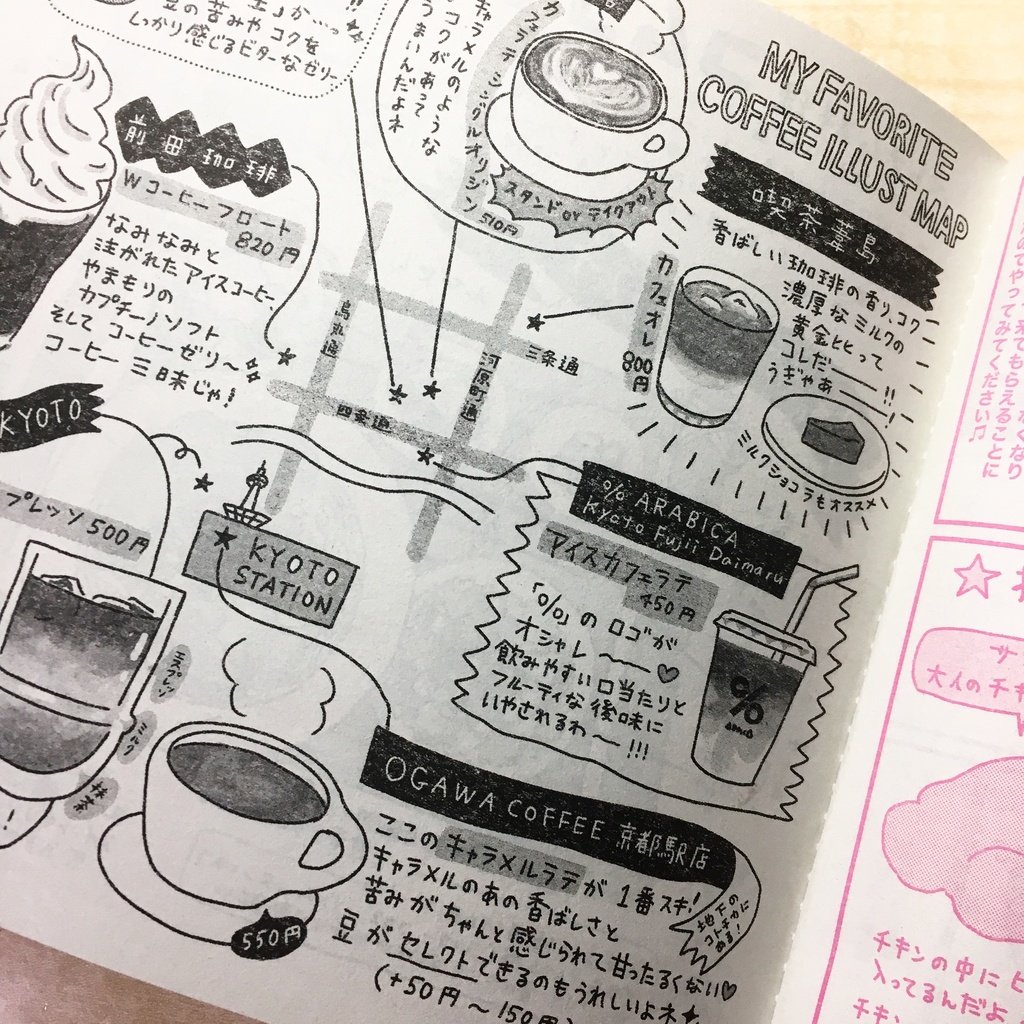 MY FAVORITE
COFFEE ILLUST MAP
豆の苦みや コクを
しっかり感じるビターなゼリー
キャラメルのような
コクがあって
うまいんだよネ
カフェラテ シングルオリジン
510円
スタンド or テイクアウト
喫茶葦島
香ばしい珈琲の香り、コク
濃厚なミルクの
黄金ヒヒって
コレだー!!
うぎゃあー!!
カフェオレ
800円
ミルクショコラもオススメ
前田珈琲
Wコーヒーフロート
820円
なみなみと
注がれたアイスコーヒー
やまもりの
カプチーノソフト
そして コーヒーゼリー〜
コーヒー 三昧じゃ!
烏丸通
河原町通
三条通
四条通
KYOTO
プレッソ 500円
エスプレッソ
ミルク
抹茶
KYOTO
STATION
% ARABICA
Kyoto Fujii Daimaru
アイスカフェラテ
450円
「%」の ロゴが
オシャレ 〜
飲みやすい口当たりと
フルーティな後味に
いやされるわ〜!!!
%
OGAWA COFFEE 京都駅店
ここのキャラメルラテが 1番スキ!
キャラメルのあの香ばしさと
苦みがちゃんと感じられて甘ったるくない
豆がセレクトできるのもうれしいよネ
(+50円〜150円)
地下の
コトチカに
ある!
550円
てやってみてください♫
大人のチキ
チキンの中にピ
入ってるんだよ
チキン